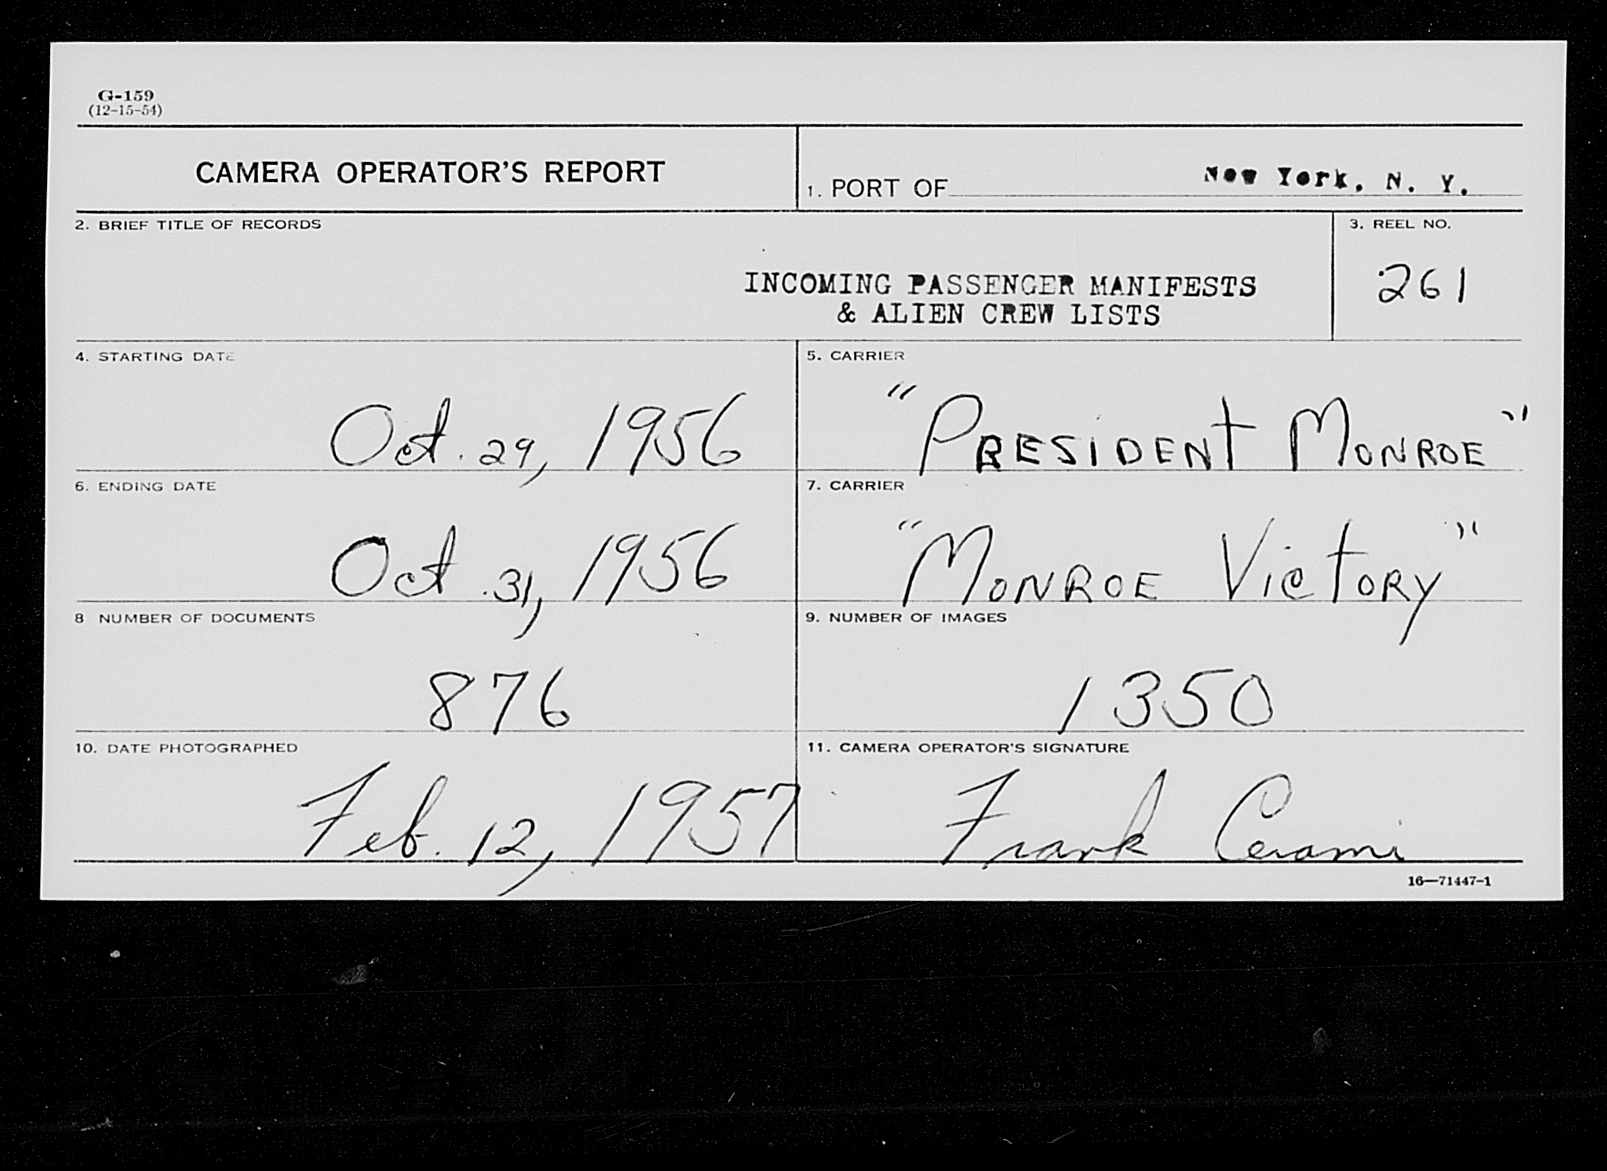 G-159
(12-15-54)
CAMERA OPERATOR'S REPORT
1. PORT OF New York, N. Y.
2. BRIEF TITLE OF RECORDS
INCOMING PASSENGER MANIFESTS
& ALIEN CREW LISTS
3. REEL NO.
261
4. STARTING DATE
Oct. 29, 1956
5. CARRIER
"PRESIDENT MONROE"
6. ENDING DATE
Oct. 31, 1956
7. CARRIER
"MONROE VICTORY"
8 NUMBER OF DOCUMENTS
876
9. NUMBER OF IMAGES
1350
10. DATE PHOTOGRAPHED
Feb. 12, 1957
11. CAMERA OPERATOR'S SIGNATURE
Frank Cerami
16—71447-1